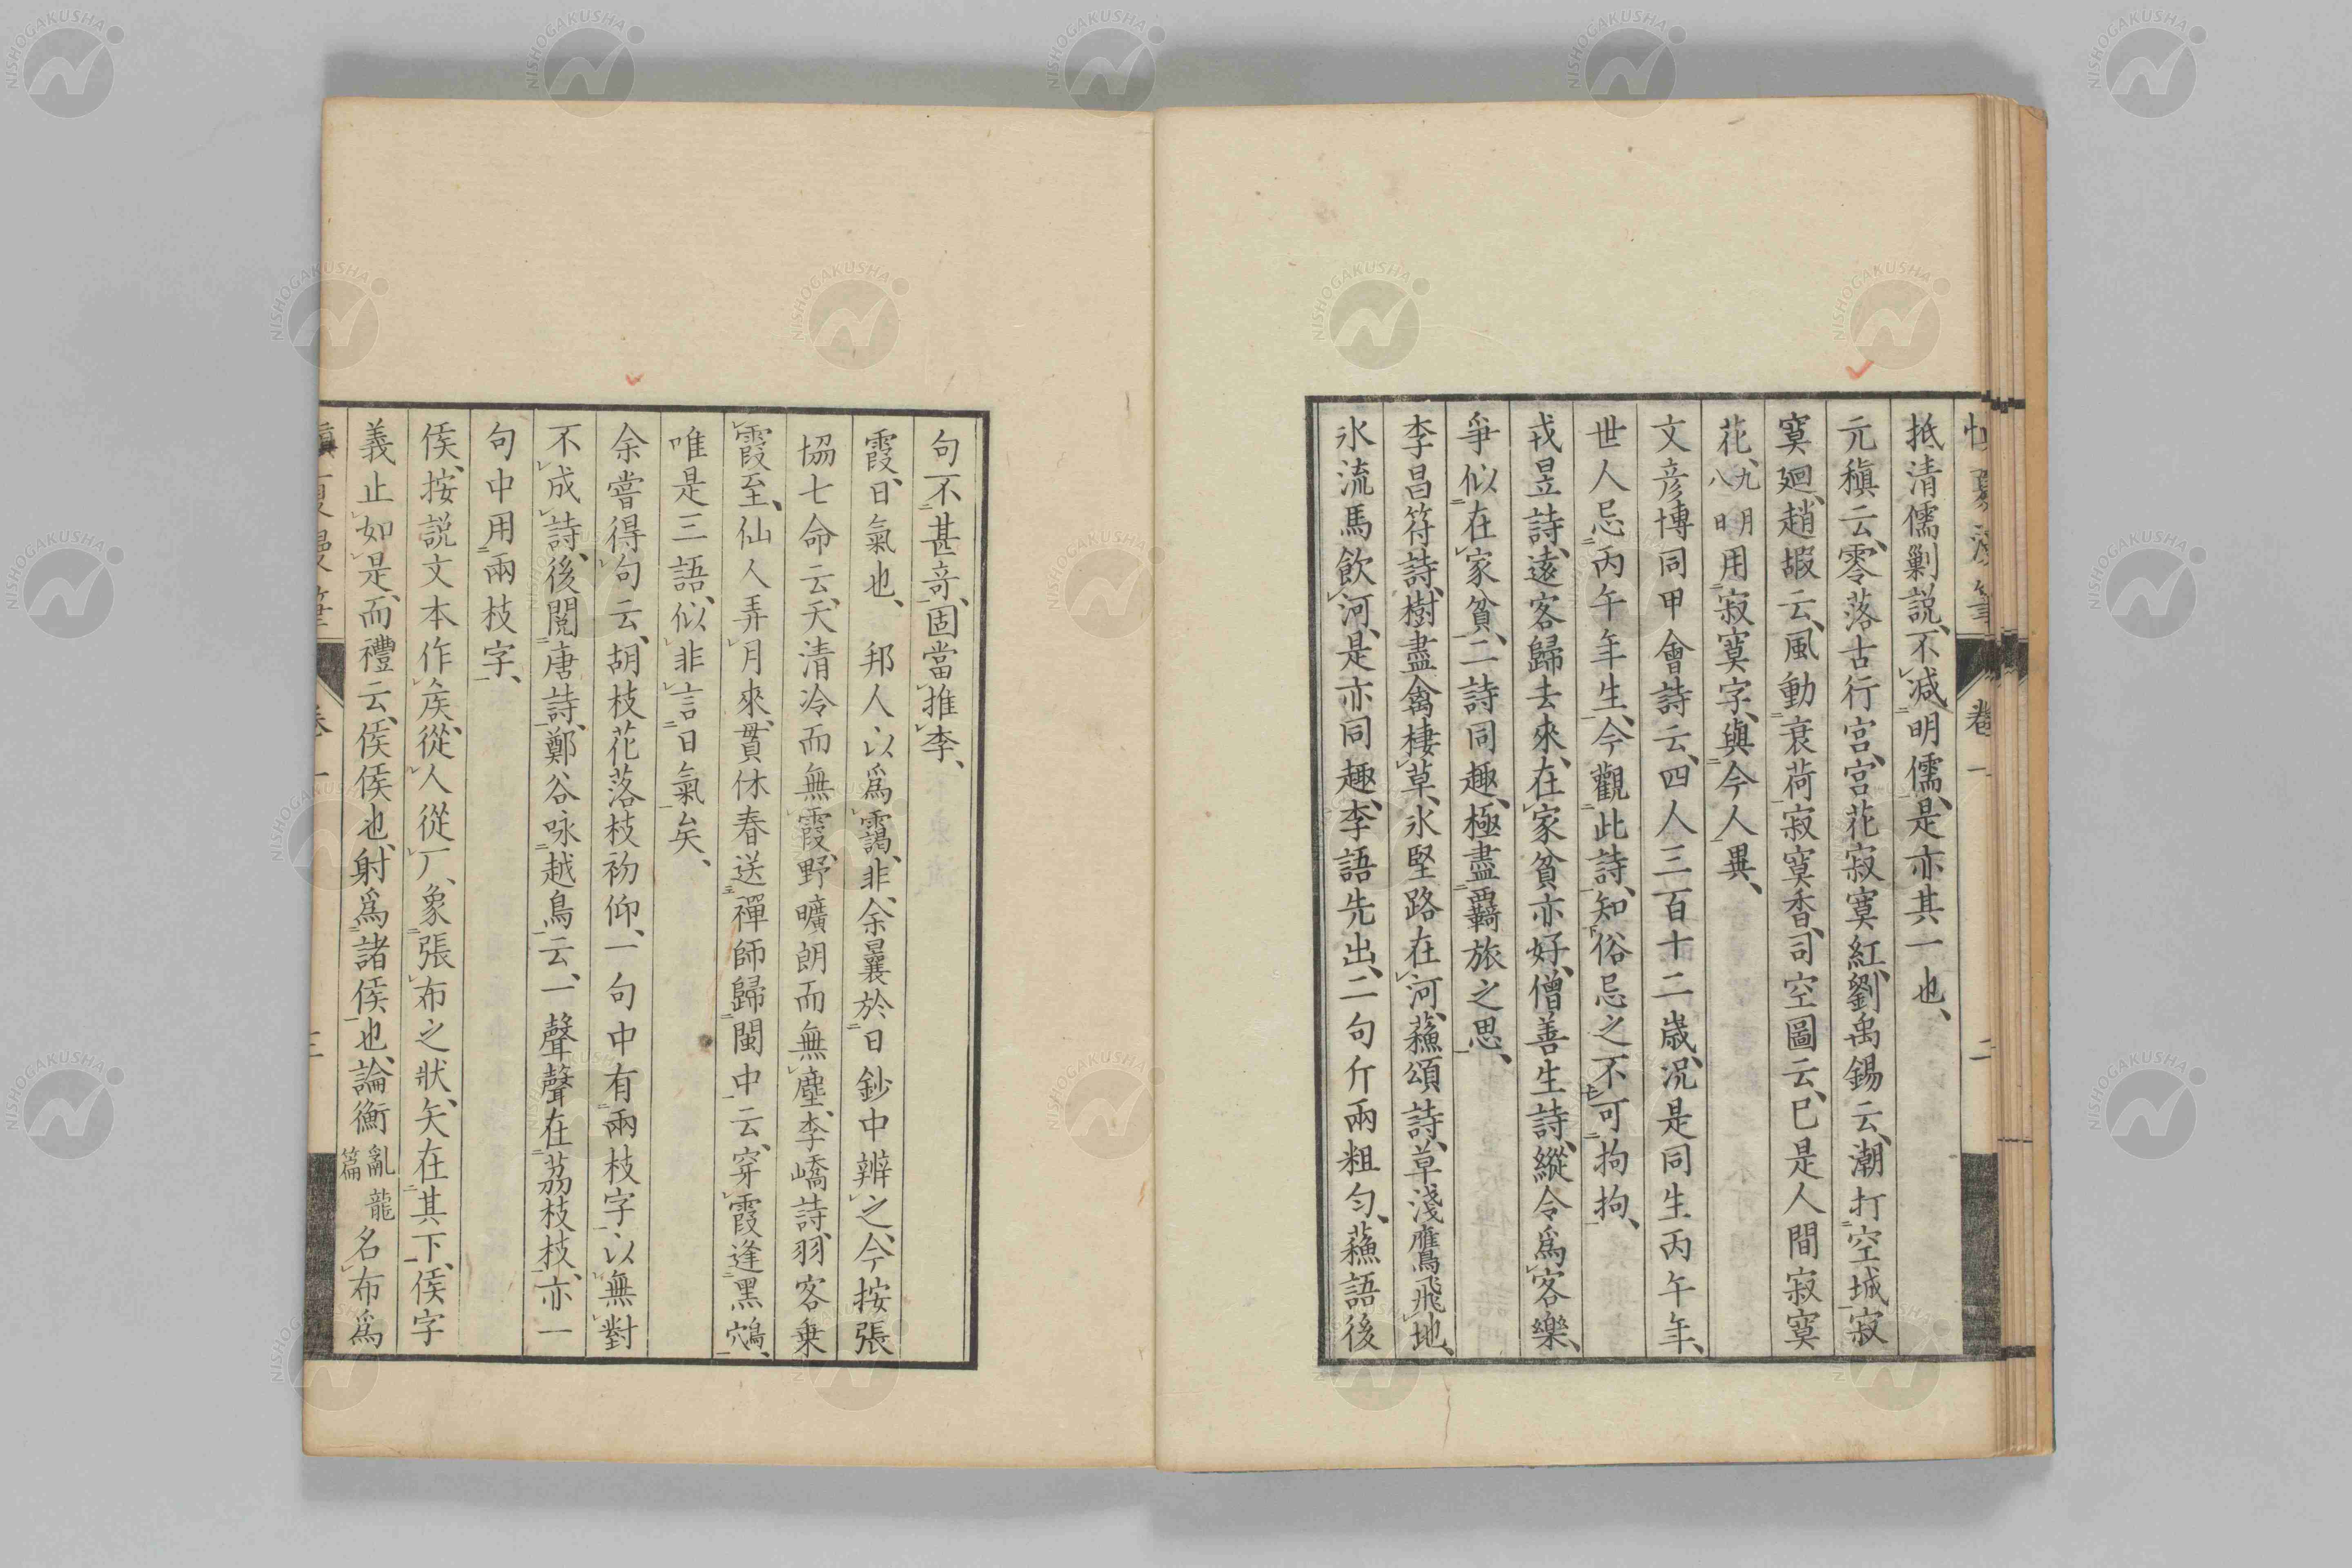 抵清儒剿説、不減明儒、是亦其一也、
元稹云、零落古行宮、宮花寂寞紅、劉禹錫云、潮打空城寂
寞廻、趙嘏云、風動衰荷寂寞香、司空圖云、已是人間寂寞
花、九八明用寂寞字、與今人異、
文彦博同甲會詩云、四人三百十二歳、况是同生丙午年、
世人忌丙午年生、今觀此詩、知俗忌之不可拘拘、
戎昱詩、遠客歸去來、在家貧亦好、僧善生詩、縱令爲客樂、
爭似在家貧、二詩同趣、極盡覊旅之思、
李昌符詩、樹盡禽棲草、氷堅路在河、蘓頌詩、草淺鷹飛地、
氷流馬飲河、是亦同趣、李語先出、二句斤兩粗匀、蘓語後
卷一 二
句不甚竒、固當推李、
霞、日氣也、邦人以爲靄、非、余曩於日鈔中辨之、今按張
協七命云、天清冷而無霞、野曠朗而無塵、李嶠詩、羽客乗
霞至、仙人弄月來、貫休春送禪師歸閩中云、穿霞逢黑鴆、
唯是三語、似非言日氣矣、
余嘗得句云、胡枝花落枝初仰、一句中有兩枝字、以無對
不成詩、後閲唐詩、鄭谷咏越鳥云、一聲聲在茘枝枝、亦一
句中用兩枝字、
侯、按説文本作矦、從人從厂、象張布之狀、矢在其下、侯字
義止如是、而禮云、侯侯也、射爲諸侯也、論衡亂龍篇名布爲